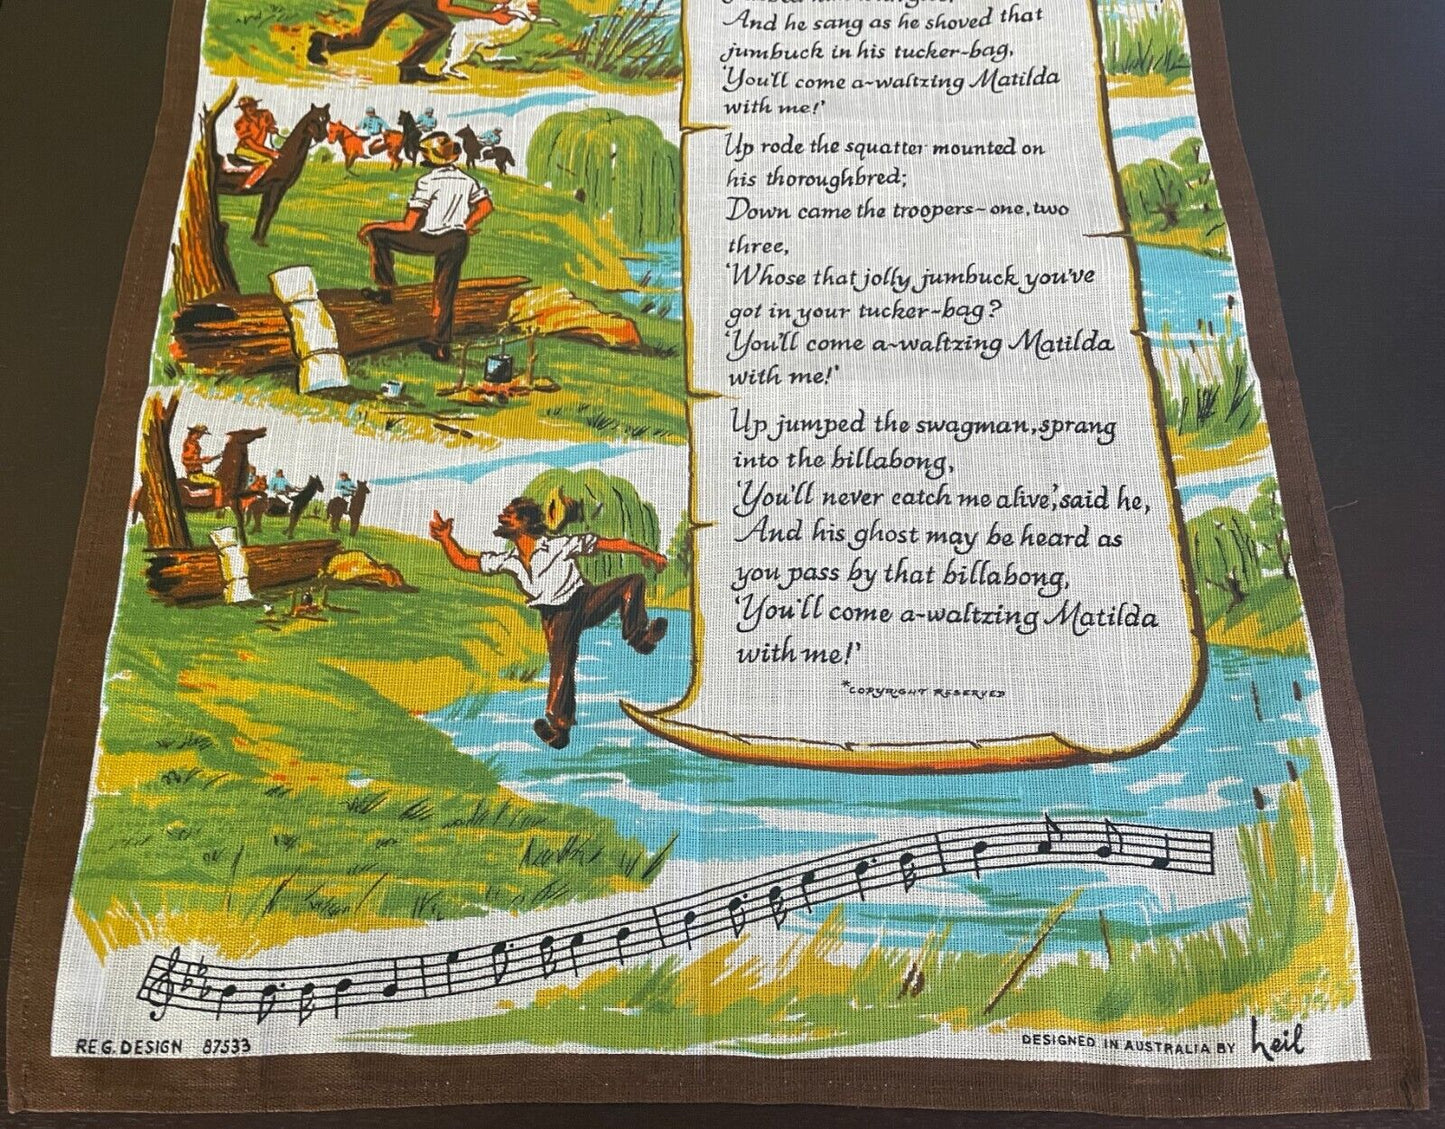 And he sang as he shoved that
jumbuck in his tucker-bag,
'You'll come a-waltzing Matilda
with me!'
Up rode the squatter mounted on
his thoroughbred;
Down came the troopers-one,two
three,
'Whose that jolly jumbuck you've
got in your tucker-bag?
'You'll come a-waltzing Matilda
with me!'
Up jumped the swagman,sprang
into the billabong,
'You'll never catch me alive,'said he,
'And his ghost may be heard as
you pass by that billabong,
'You'll come a-waltzing Matilda
with me!'
*COPYRIGHT RESERVED
REG. DESIGN 87533
DESIGNED IN AUSTRALIA BY heil